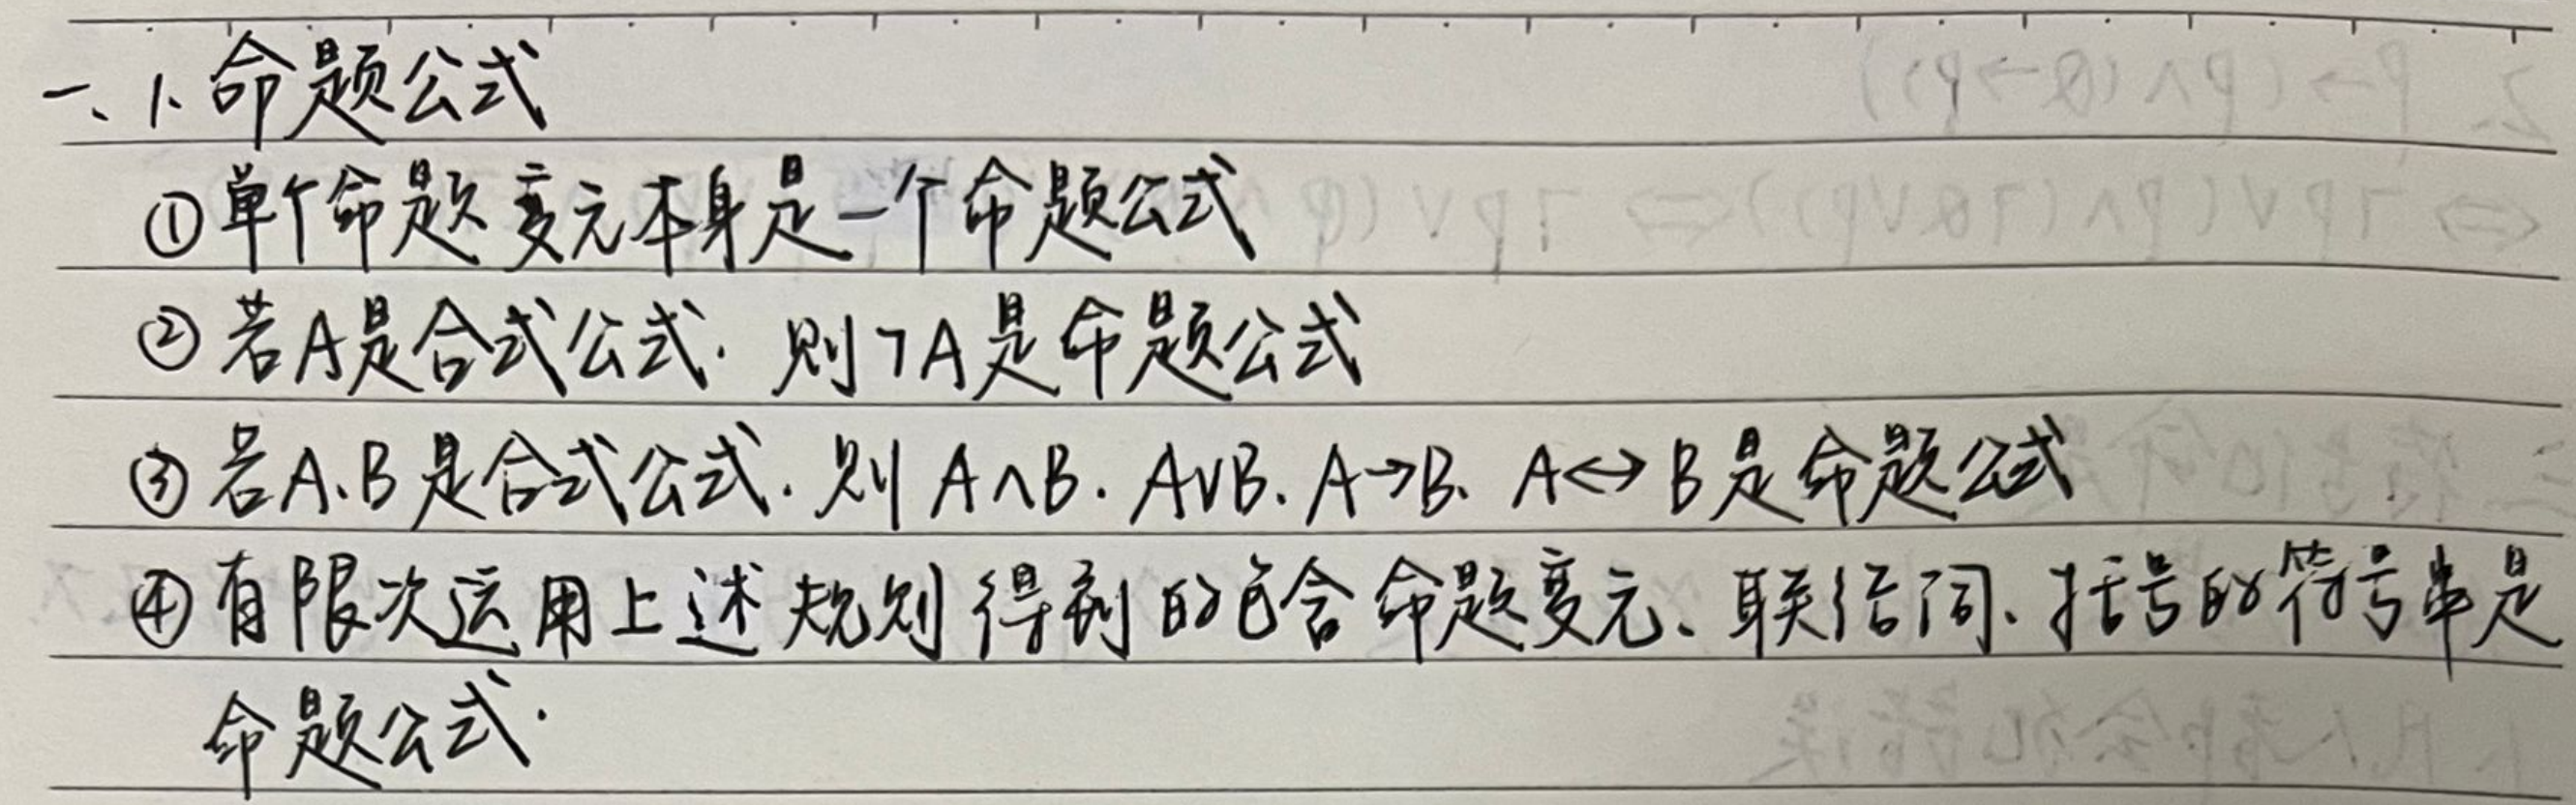 一、1. 命题公式
①单个命题变元本身是一个命题公式
②若A是合式公式. 则¬A是命题公式
③若A、B是合式公式. 则A∧B. A∨B、A→B、A↔B是命题公式
④有限次运用上述规则得到的包含命题变元、联结词、括号的符号串是
命题公式.